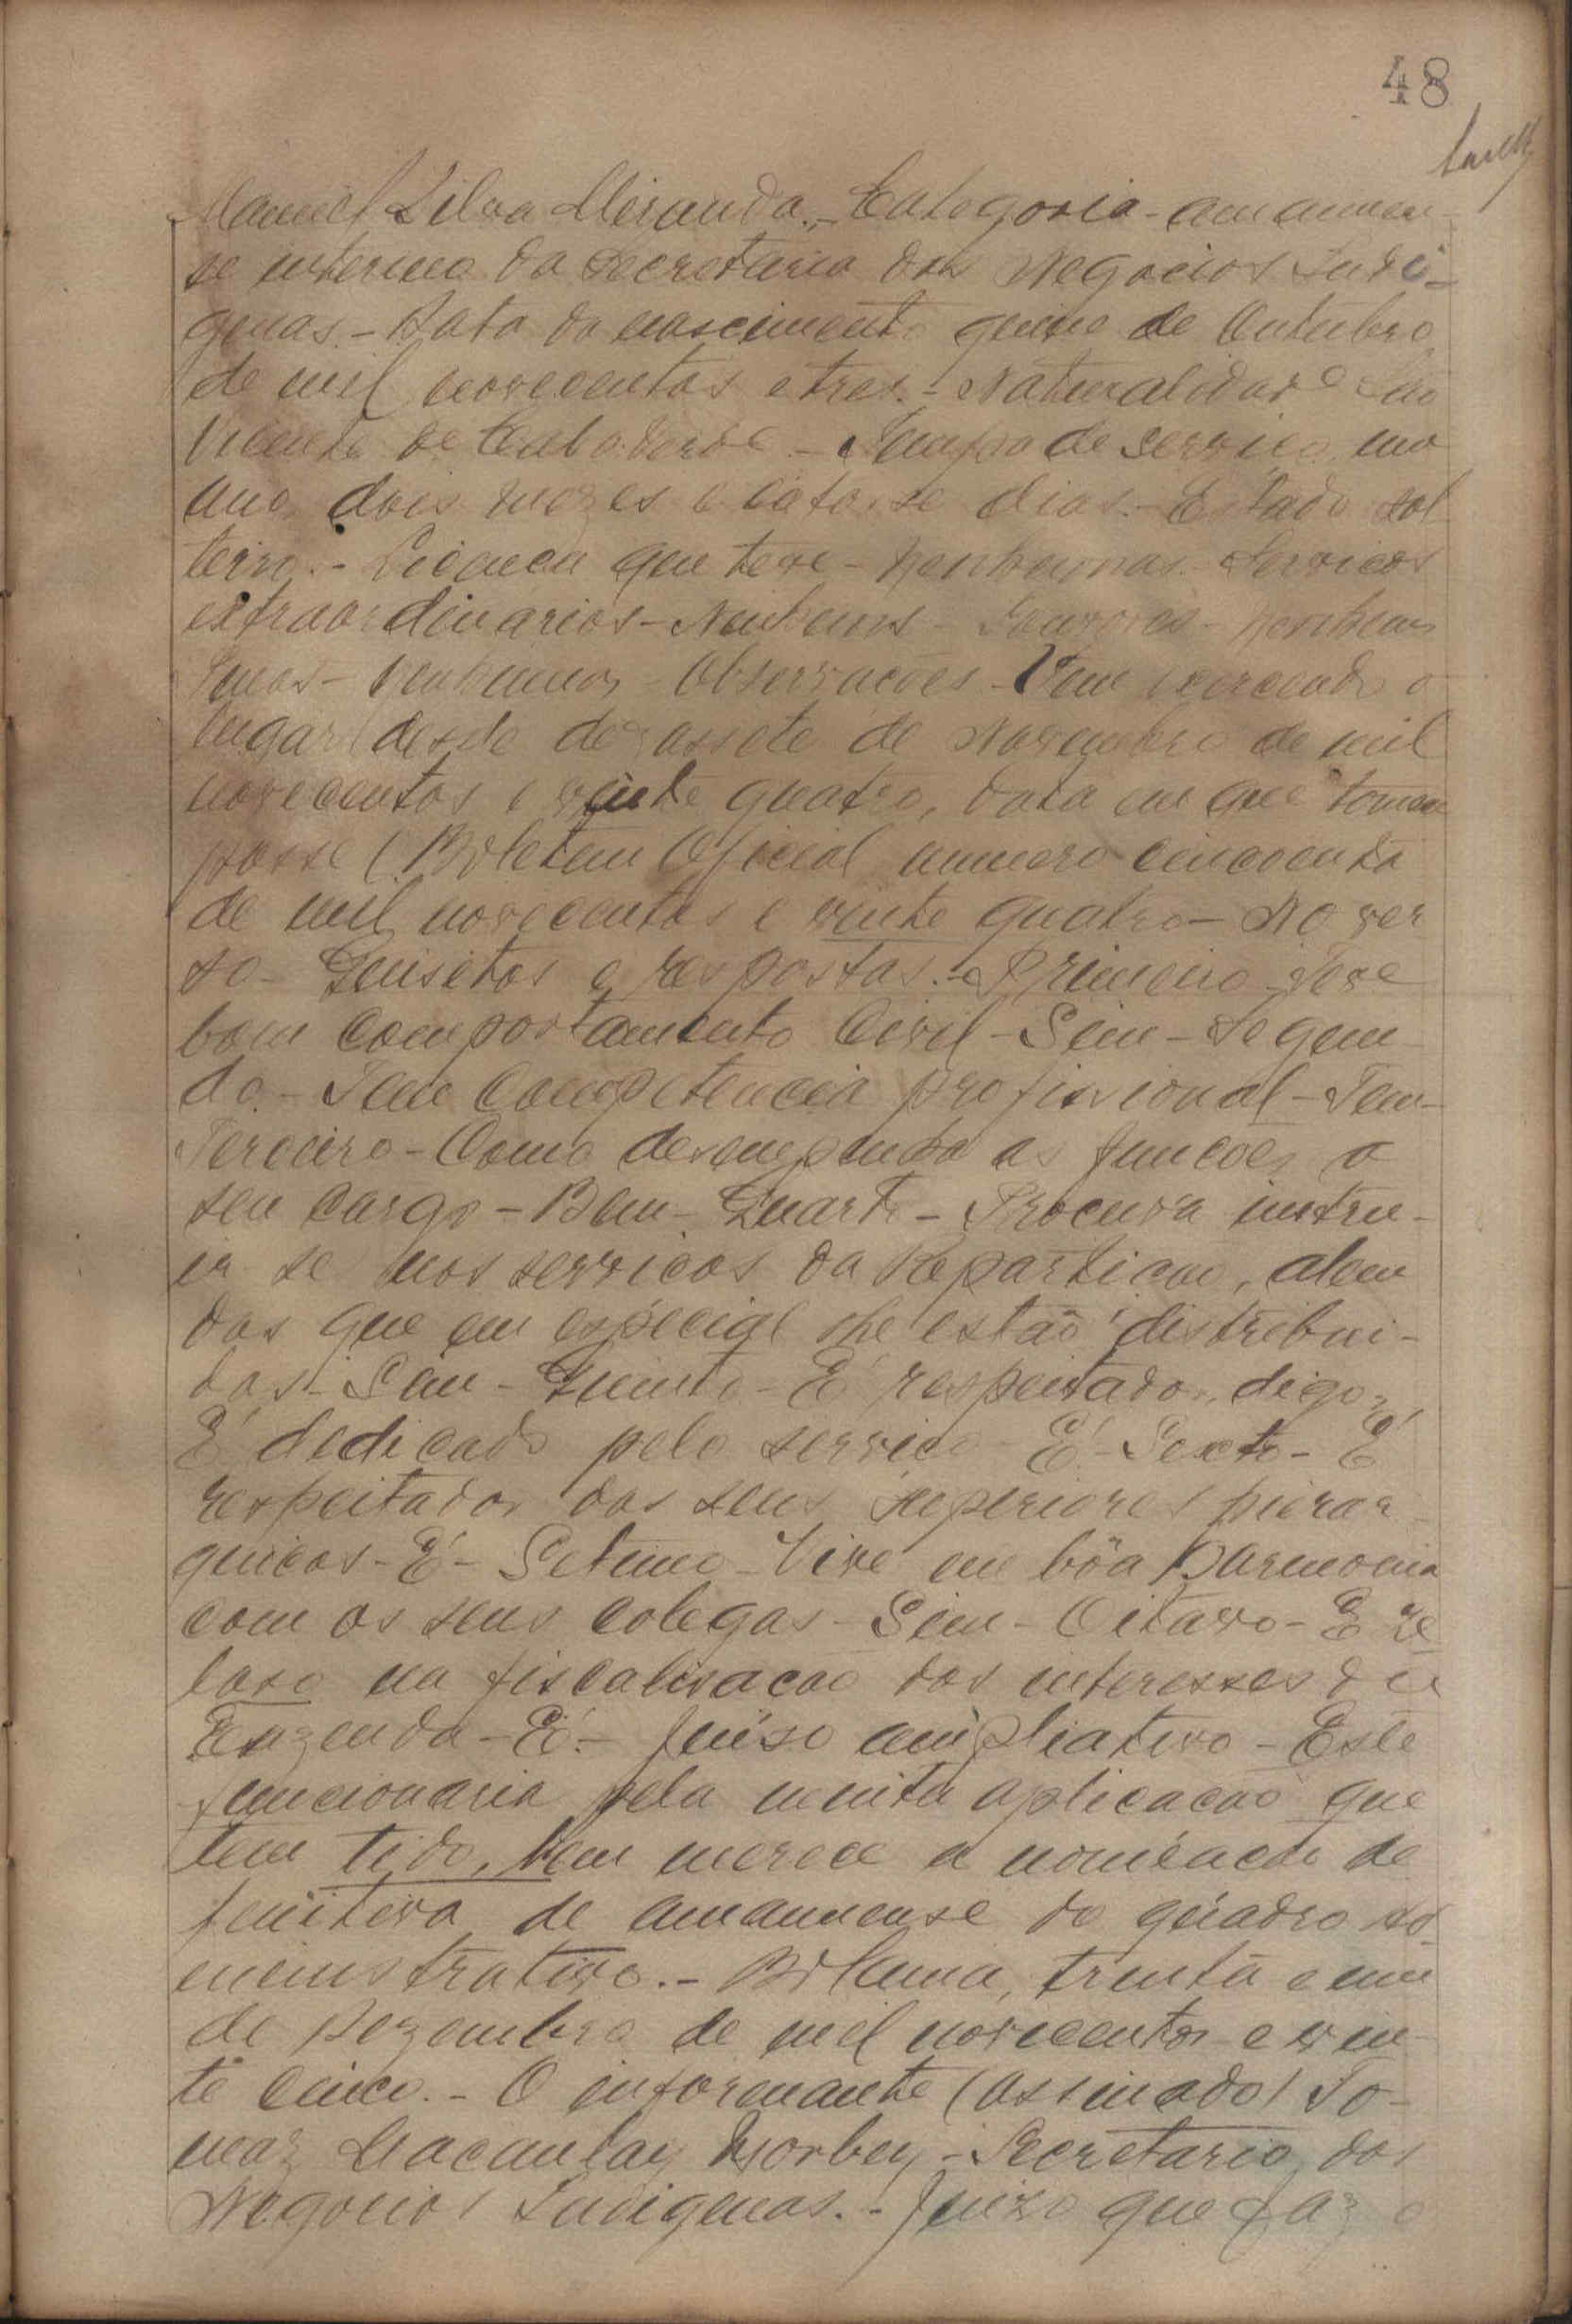 48
Manuel Silva Miranda.- Categoria - amanuen-
se interino da Secretaria dos Negocios Indi-
genas.- Data do nascimento quinze de Outubro
de mil novecentos e tres.- Naturalidade São
Vicente de Cabo Verde - Tempo de serviço um
ano, dois mezes e catorse dias.- Estado sol-
teiro.- Licenca que teve - Nenhumas. Servicos
extraordinarios - Nenhuns - Louvores - Nenhuns
Penas - Nenhumas - Observacões - Vem exercendo o
lugar desde dezassete de Novembro de mil
novecentos e vinte quatro, data em que tomou
posse (Boletim Oficial numero cincoenta
de mil novecentos e vinte quatro - No ver
so - Quesitos e respostas.- Primeiro - Teve
bom comportamento Civil - Sim - Segun-
do - Tem competencia profissional - Tem -
Terceiro - Como desempenha as funcões a
seu cargo - Bem - Quarto - Procura instru-
ir se nos servicos da Reparticao, alem
dos que em especial lhe estão distribui-
dos - Sim - Quinto - É respeitador, digo,
É dedicado pelo servico - É - Sexto - É
respeitador dos seus superiores hierar
quicos - É - Setimo - Vive em bôa harmonia
com os seus colegas - Sim - Oitavo - É ze
loso na fiscalisacao dos interesses da
Fazenda - É.- Juiso ampliativo - Este
funcionario pela muita aplicacão que
tem tido, bem merece a nomeacão de
finitiva de amanuense do quadro ad-
ministrativo.- Bolama, trinta e um
de Dezembro de mil novecentos e vin-
te cinco.- O informante (assinado) To-
maz Macaulay Worbey - Secretario dos
Negocios Indigenas.- Juizo que faz o